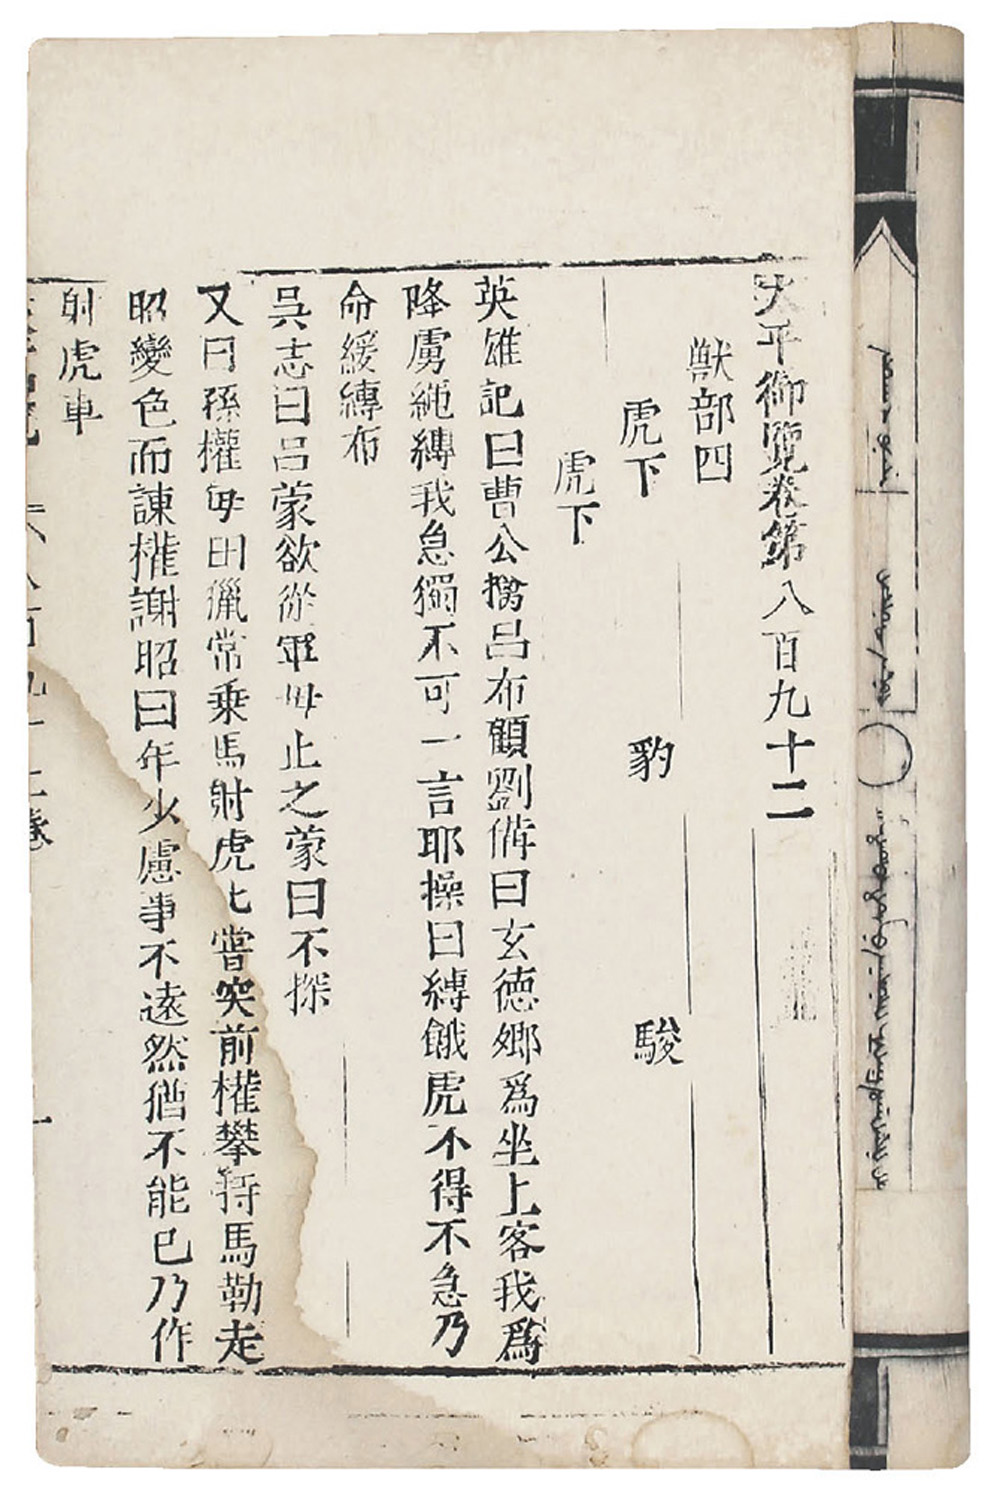 太平御覽卷第八百九十二
獸部四
虎下 豹 駿
虎下
英雄記曰曹公擒呂布顧劉備曰玄德卿爲坐上客我爲
降虜繩縛我急獨不可一言耶操曰縛餓虎不得不急乃
命緩縛布
吳志曰呂蒙欲從軍母止之蒙曰不探
又曰孫權每田獵常乘馬射虎虎嘗突前權攀持馬勒走
昭變色而諫權謝昭曰年少慮事不遠然猶不能已乃作
射虎車